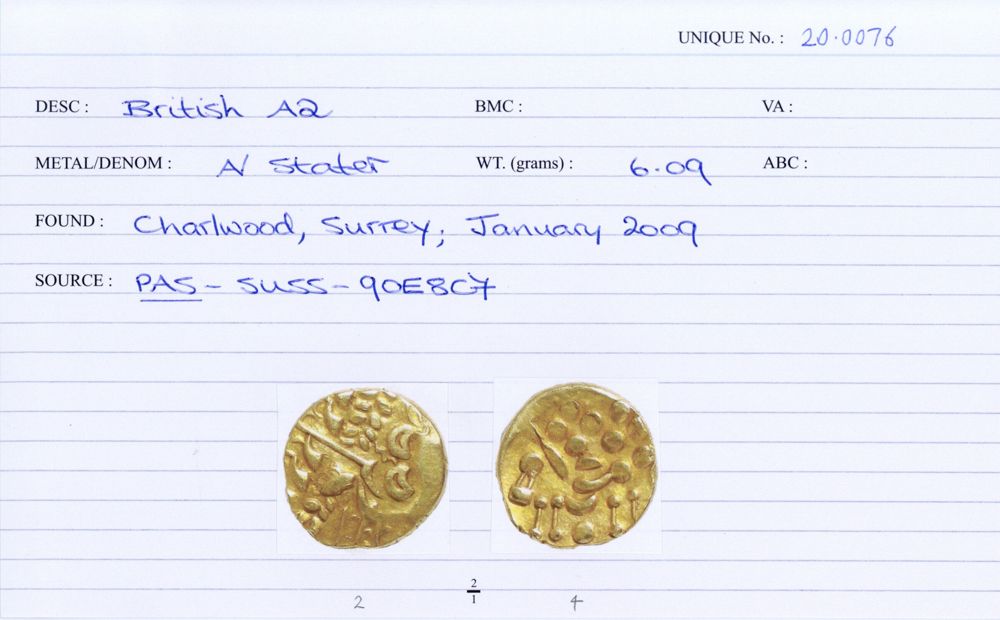 UNIQUE No. : 20·0076
DESC : British A2 BMC : VA :
METAL/DENOM : A/ Stater WT. (grams) : 6.09 ABC :
FOUND : Charlwood, Surrey; January 2009
SOURCE : PAS - SUSS - 90E8C7
2 2/1 4